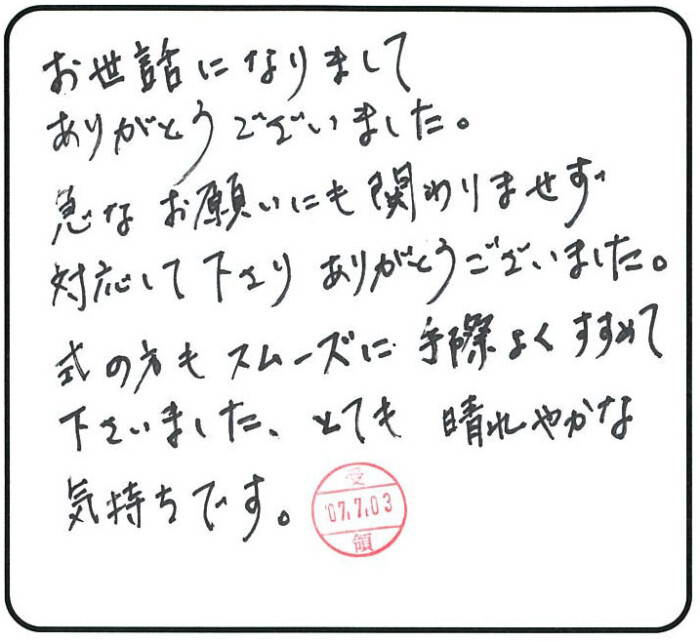 お世話になりまして
ありがとうございました。
急なお願いにも関わりませず
対応して下さり ありがとうございました。
式の方もスムーズに 手際よくすすめて
下さいました、とても 晴れやかな
気持ちです。
受
'07.7.03
領